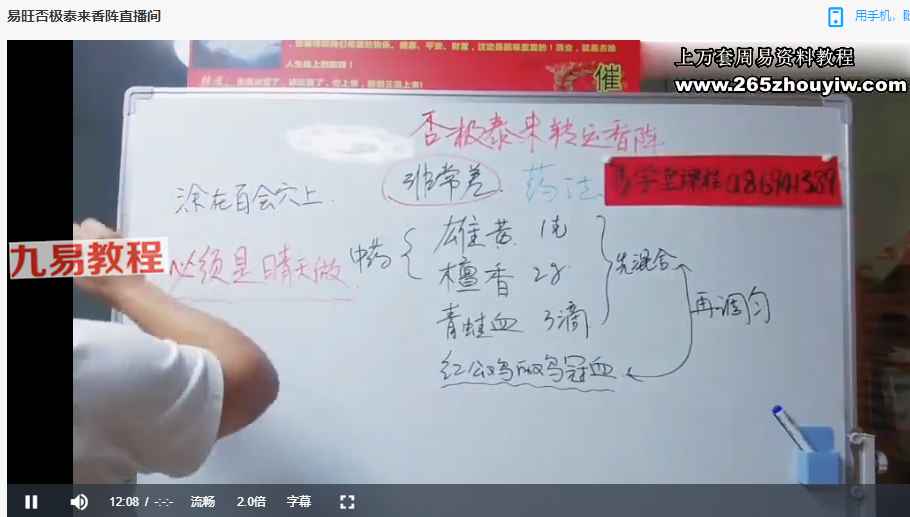 易旺否极泰来香阵直播间
用手机，
人生路上的前程！
催
上万套周易资料教程
www.265zhouyiw.com
否极泰来转运香阵
非常差
药法
涂在百会穴上.
九易教程
必须是晴天做
中药
雄黄
檀香 2g
青蛙血 3滴
红公鸡
鸡冠血
先混合
再调匀
12:08 / -:-:-
流畅
2.0倍
字幕